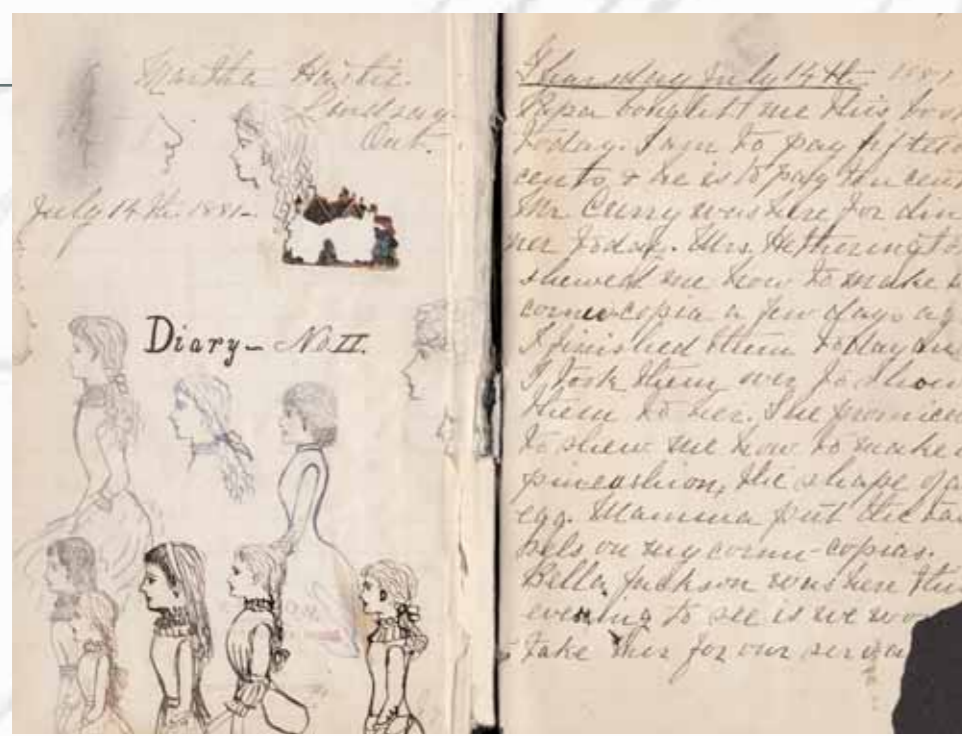 Martha Hartie.
Lindsay
Ont.
July 14th. 1881-
Diary- No II.
Thursday July 14th 1881
Papa bought me this boo
today. I am to pay fifteen
cents & he is to pay ten cent
Mr. Curry was here for din
ner today. Mrs. Hetherington
shewed me how to make
cornu-copia a few days ag
I finished them today an
I took them over to show
them to her. She promiced
to shew me how to make
pincushion, the shape of a
egg. Mamma put the tas
sels on my cornu-copias.
Bella Jackson was here this
evening to see is we wo
take her for our serva